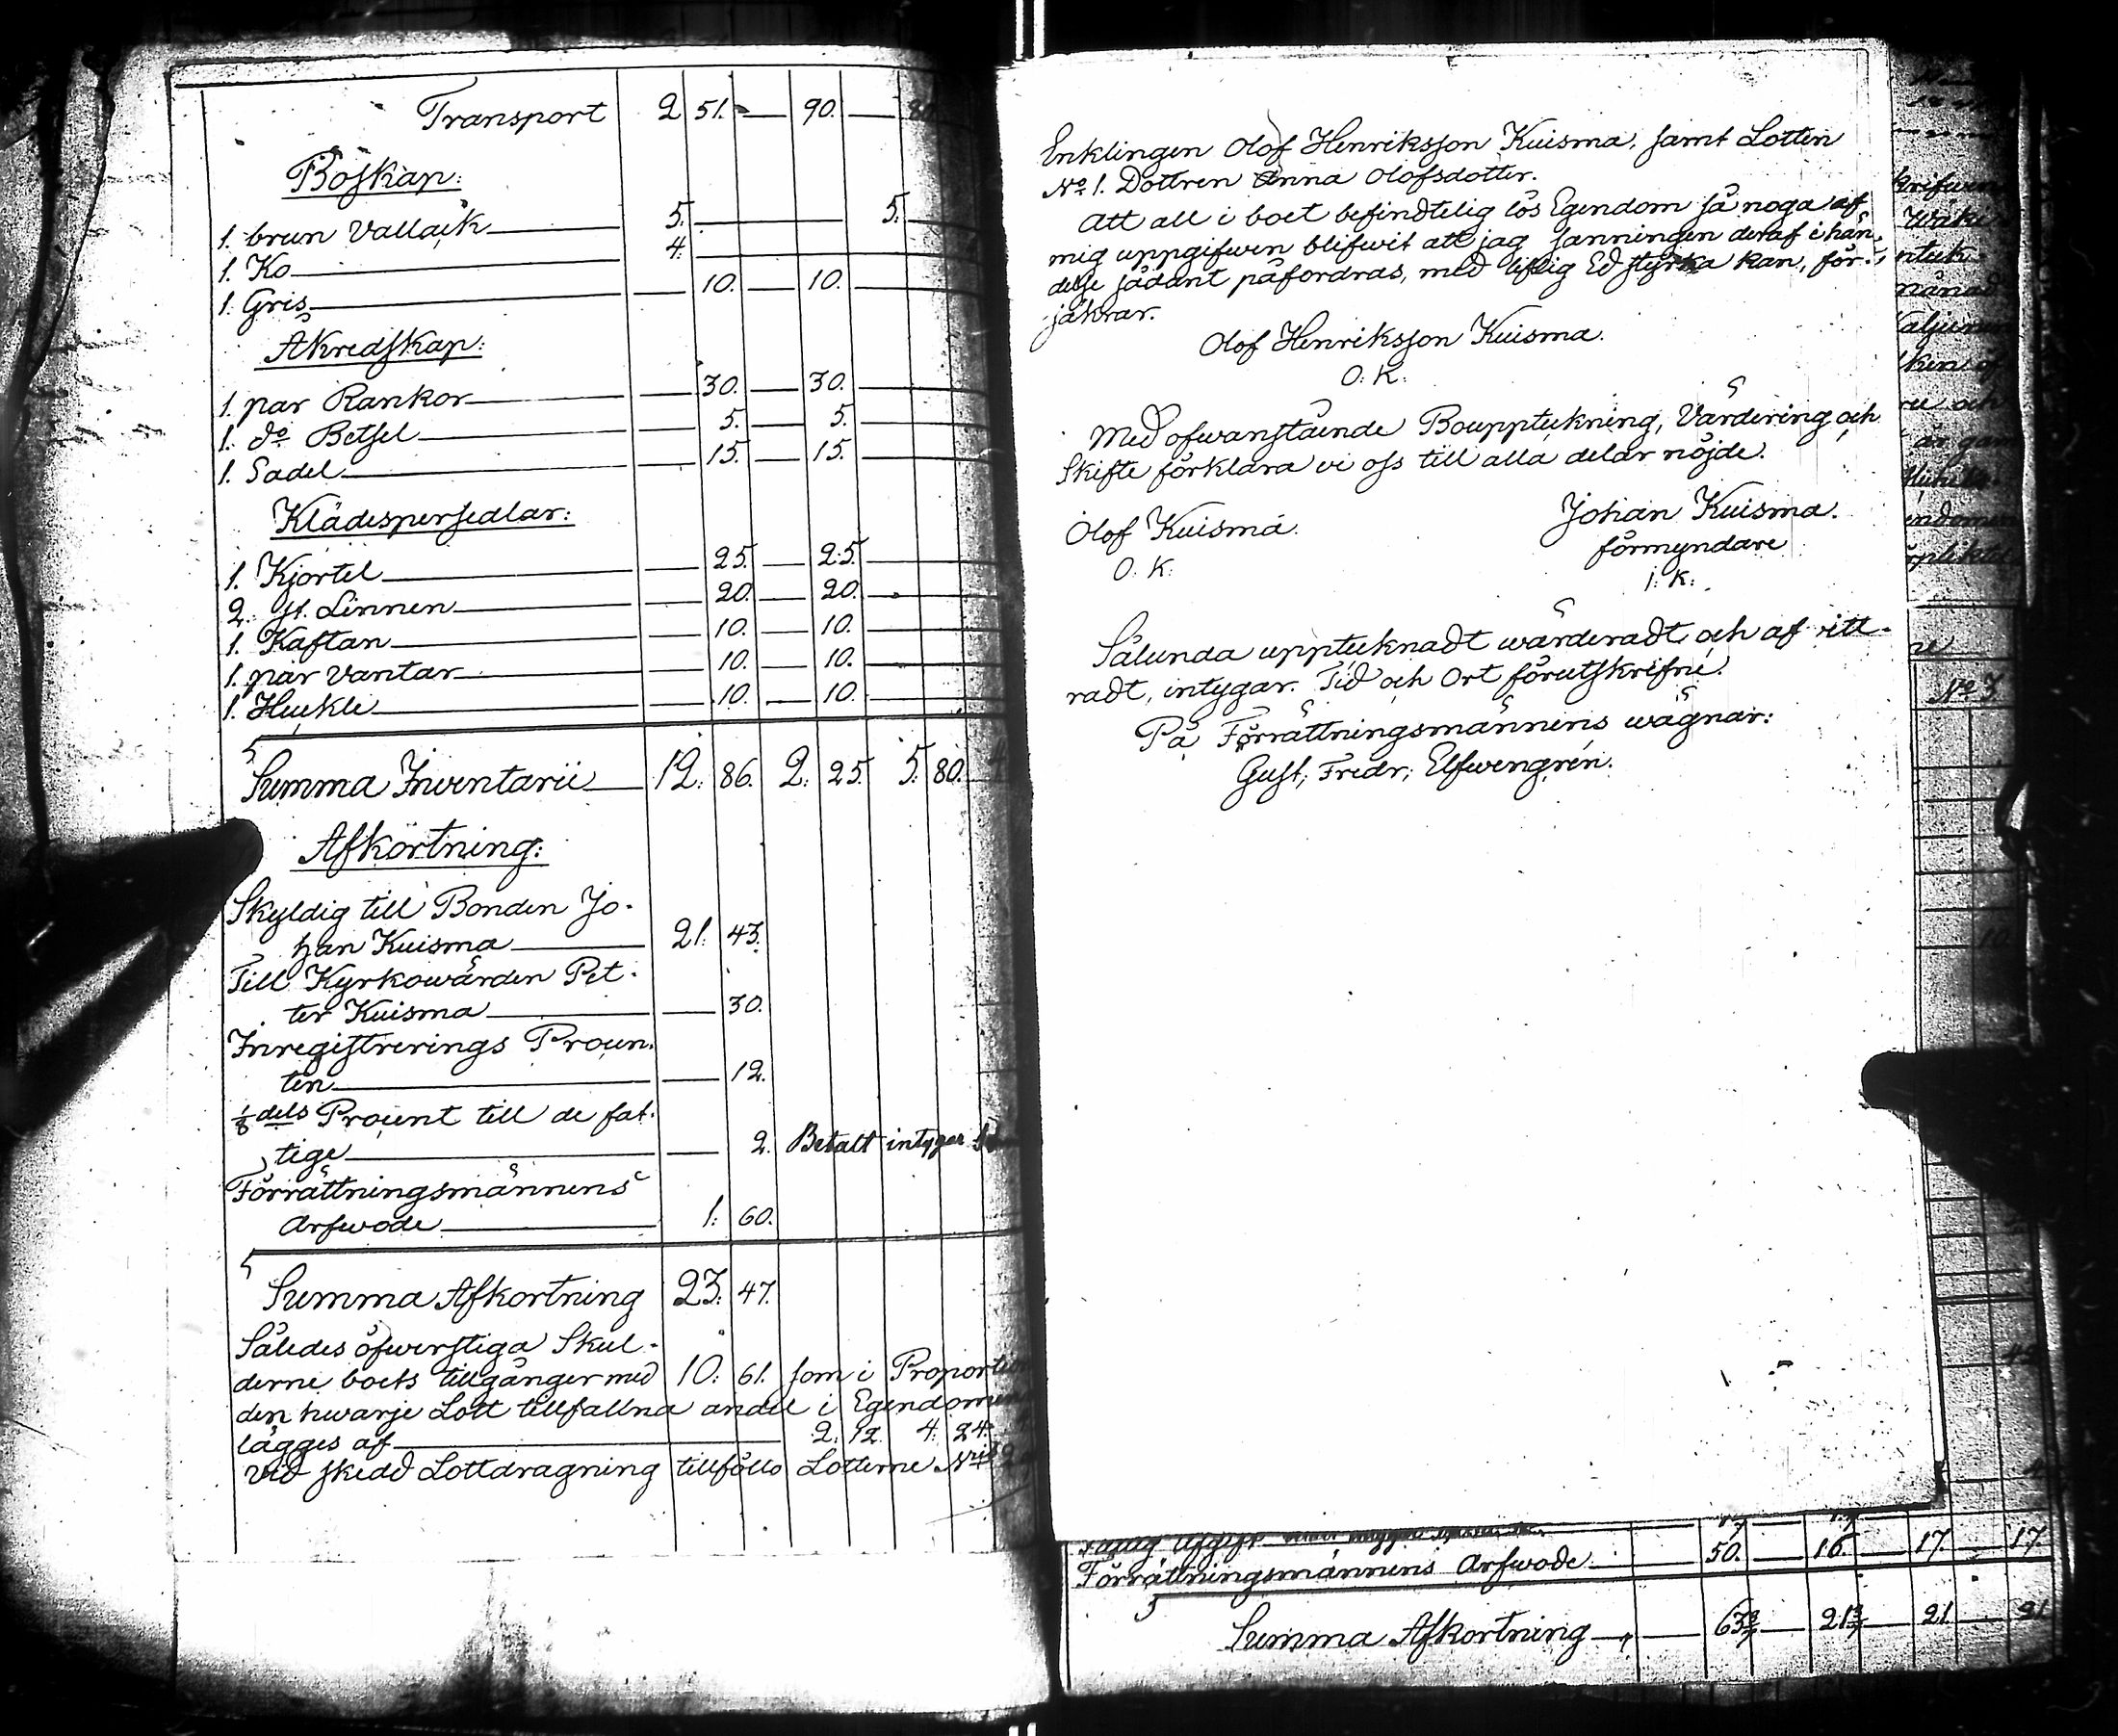 Transport 2 51. — 90. —
Boskap:
1. brun Vallack — 5. — 5.
1. Ko — 4.
1. Gris — 10. — 10.
Åkredskap:
1. par Rankor — 30. — 30.
1. do Betsel — 5. — 5.
1. Sadel — 15. — 15.
Klädespersedlar:
1. Kjortel — 25. — 25.
2. st. Linnen — 20. — 20.
1. Kaftan — 10. — 10.
1. par Vantar — 10. — 10.
1. Huckle — 10. — 10.
Summa Inventarii — 12. 86. 2. 25. 5. 80. 4
Afkortning:
Skyldig till Bonden Jo-
han Kuisma — 21. 43.
Till Kyrkowärden Pet-
ter Kuisma — 30.
Inregistrerings Procen-
ten — 12.
1/8 dels Procent till de fat-
tige — 2. Betalt intygar
Förrättningsmännens
Arfwode — 1. 60.
Summa Afkortning 23. 47.
Således öfwerstiga Skul-
derne boets tillgånger med 10. 61. som i Proportion
den hwarje Lott tillfallna andel i Egendomen
lägges af — 2. 12. 4. 24.
Vid skedd Lottdragning tillföllo Lotterne
Enklingen Olof Henriksson Kuisma, samt Lotten
No 1. Dottren Anna Olofsdotter.
Att all i boet befindtelig lös Egendom så noga af
mig uppgifwen blifwit att jag sanningen deraf i hän-
delse sådant påfordras, med liflig Ed styrka kan, för-
säkrar.
Olof Henriksson Kuisma.
O. K.
Med ofwanstående Bouppteckning, Värdering och
Skifte förklara vi oss till alla delar nöjde.
Olof Kuisma. Johan Kuisma.
O. K. förmyndare
I. K.
Sålunda upptecknadt wärderadt och af vitt-
radt, intygar. Tid och Ort förutskrifne.
På Förrättningsmännens wägnar:
Gust. Fredr. Elfwengrén.
Förrättningsmännens Arfwode — 50. — 16. — 17 — 17.
Summa Afkortning — 63 2/7 — 21 2/7 — 21 — 21
No 3
10